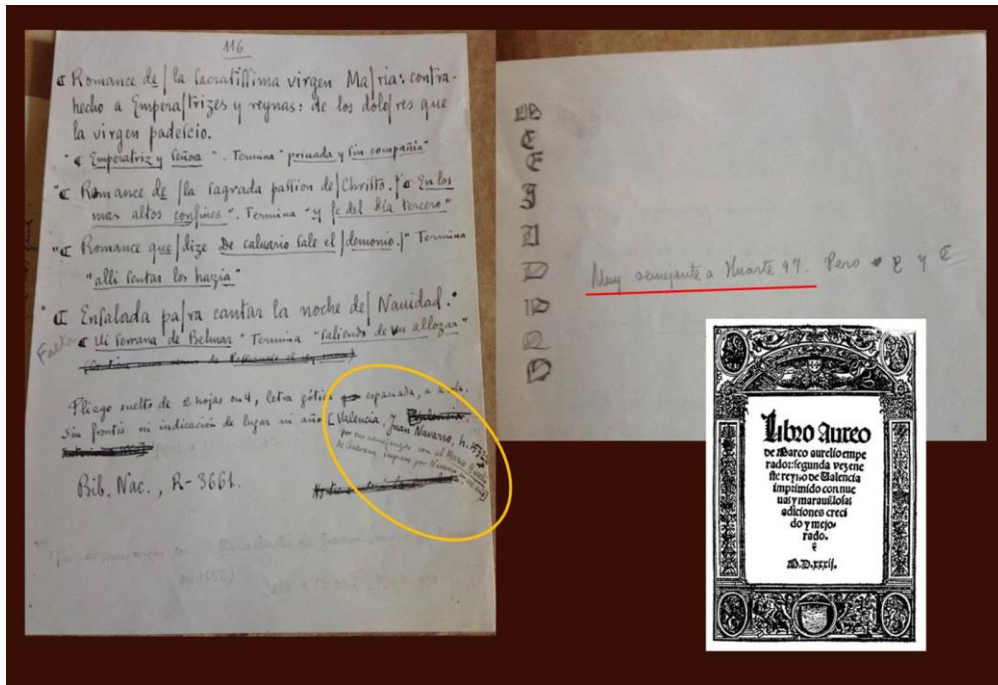 116
ꟼ Romance de | la sacratissima virgen Ma|ria: contra-
hecho a Empera|trizes y reynas: de los dolo|res que
la virgen padescio.
"ꟼ Emperatriz y señora". Termina "privada y sin compañia"
"ꟼ Romance de |la sagrada passion de| Christo.|"ꟼ En los
mas altos confines". Termina "y fe del dia tercero"
"ꟼ Romance que | dize De caluario sale el | demonio.|" Termina
"alli sentar los hazia"
"ꟼ Ensalada pa|ra cantar la noche de| Nauidad."
Falta
ꟼ Ui semana de Belmar" Termina "saliendo de un allozar"
Pliego suelto de 2 hojas en 4, letra gótica espaciada, a
Sin frontis ni indicación de lugar ni año [Valencia, Juan Navarro, h. 1532
por su semejanza con el Marco Aurelio
de Guevara, impreso por Navarro
Bib. Nac., R-3661.
semejanza con Marco Aurelio de Guevara
en 1532)
M
E
E
D
P
D
Muy semejante a Huarte 97. Pero
Libro Aureo
de Marco aurelio empe
rador: segunda vez ene
ste reyno de Valencia
imprimido con nue
uas y marauillosas
adiciones creci
do y mejo-
rado.
M.D.xxxij.